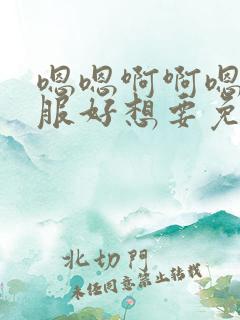 嗯嗯啊啊嗯
服好想要免
北切門
未经同意禁止转载